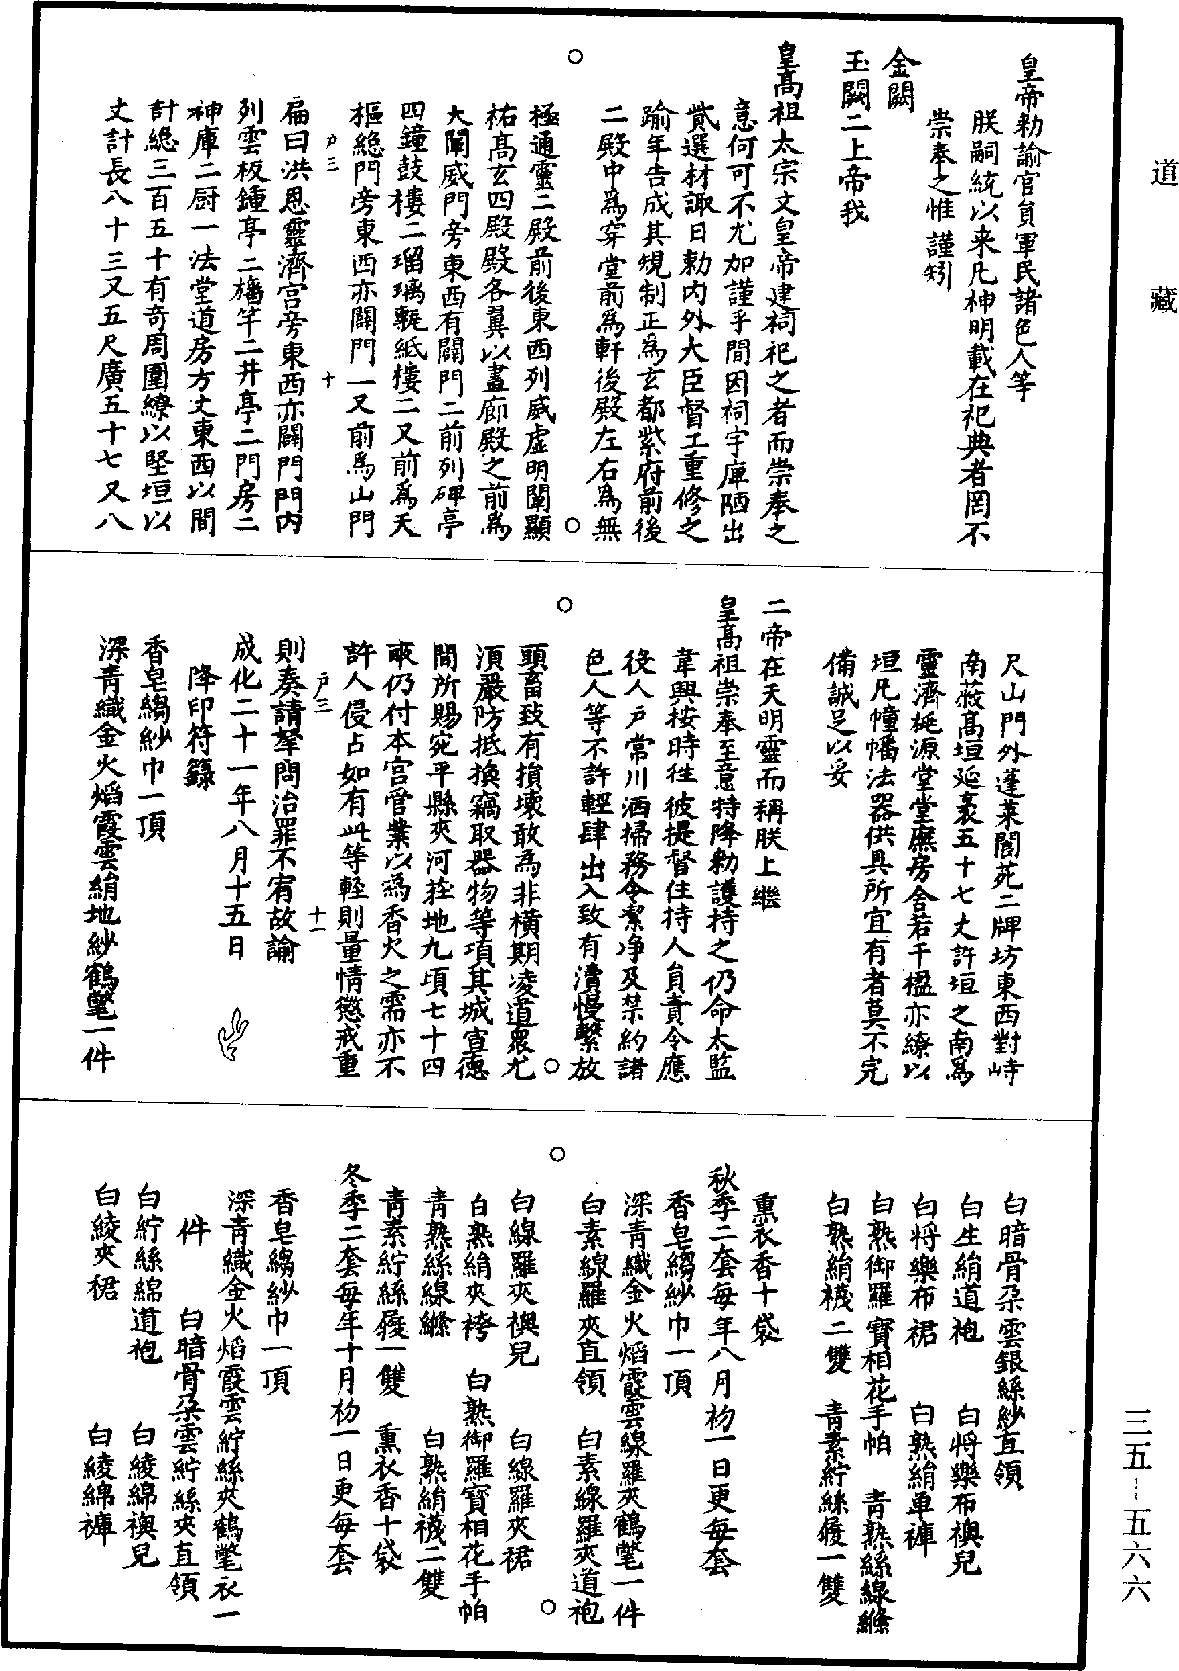 道藏
皇帝勅諭官員軍民諸色人等
朕嗣統以来凡神明載在祀典者罔不
崇奉之惟謹矧
金闕
玉闕二上帝我
皇高祖太宗文皇帝建祠祀之者而崇奉之
意何可不尤加謹乎間因祠宇庫陋出
貲選材諏日勅内外大臣督工重修之
踰年告成其規制正為玄都紫府前後
二殿中為穿堂前為軒後殿左右為無
極通靈二殿前後東西列威虛明闡顯
祐高玄四殿殿各翼以畫廊殿之前為
大闡威門旁東西有闢門二前列碑亭
四鐘鼓樓二瑠璃甎紙樓二又前為天
樞總門旁東西亦闢門一又前為山門
戶三 十
扁曰洪恩靈濟宮旁東西亦闢門門内
列雲板鍾亭二旛竿二井亭二門房二
神庫二厨一法堂道房方丈東西以間
計總三百五十有奇周圍繚以堅垣以
丈計長八十三又五尺廣五十七又八
尺山門外蓬萊閬苑二牌坊東西對峙
南蔽高垣延袤五十七丈許垣之南為
靈濟挺源堂堂廡房舍若干楹亦繚以
垣凡幢幡法器供具所宜有者莫不完
備誠足以妥
二帝在天明靈而稱朕上繼
皇高祖崇奉至意特降勅護持之仍命太監
韋興按時徃彼提督住持人員責令應
役人戶常川洒掃務令潔净及禁約諸
色人等不許輕肆出入致有瀆慢繫放
頭畜致有損壞敢為非橫期凌道衆尤
湏嚴防抵換竊取器物等項其城宣德
間所賜宛平縣夾河莊地九頃七十四
畞仍付本宮管業以為香火之需亦不
許人侵占如有此等輕則量情懲戒重
戶三 十一
則奏請拏問治罪不宥故諭
成化二十一年八月十五日
降印符籙
香皂縐紗巾一頂
深青織金火焰霞雲絹地紗鶴氅一件
白暗骨朶雲銀絲紗直領
白生絹道袍 白将樂布襖兒
白将樂布裙 白熟絹單褲
白熟御羅寶相花手帕 青熟絲線縧
白熟絹襪二雙 青素紵絲履一雙
熏衣香十袋
秋季二套每年八月初一日更每套
香皂縐紗巾一頂
深青織金火焰霞雲線羅夾鶴氅一件
白素線羅夾直領 白素線羅夾道袍
白線羅夾襖兒 白線羅夾裙
白熟絹夾袴 白熟御羅寶相花手帕
青熟絲線縧 白熟絹襪二雙
青素紵絲履一雙 熏衣香十袋
冬季二套每年十月初一日更每套
香皂縐紗巾一頂
深青織金火焰霞雲紵絲夾鶴氅衣一
件 白暗骨朶雲紵絲夾直領
白紵絲綿道袍 白綾綿襖兒
白綾夾裙 白綾綿褲
三五—五六六